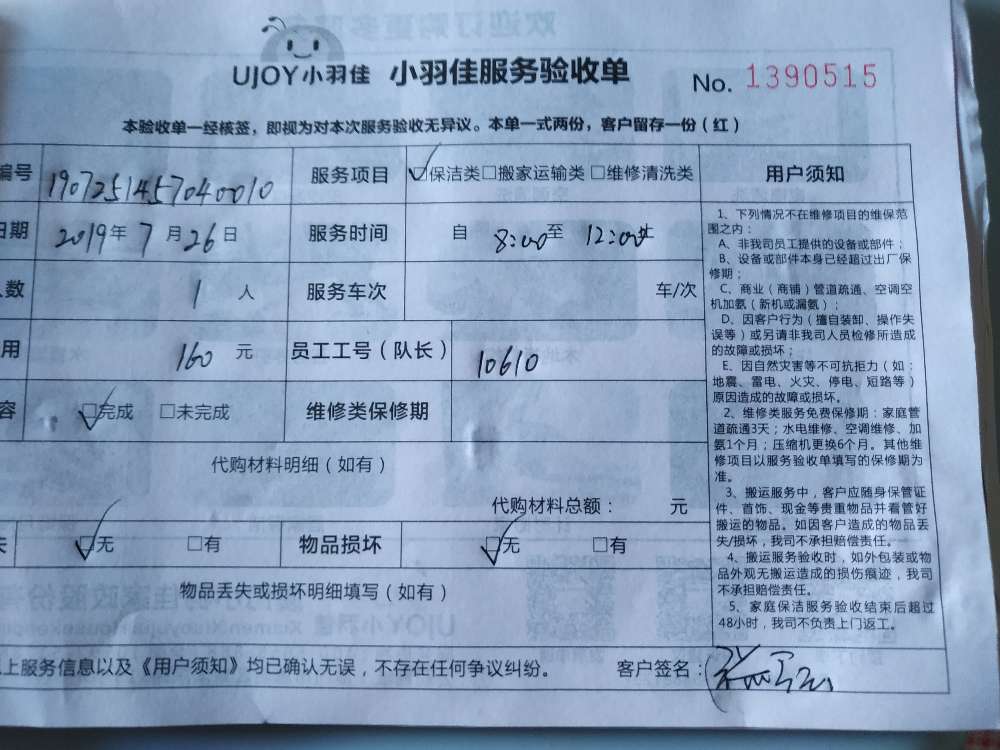 UJOY小羽佳 小羽佳服务验收单 No. 1390515
本验收单一经核签，即视为对本次服务验收无异议。本单一式两份，客户留存一份（红）
编号 1907251457040010 服务项目 保洁类□搬家运输类□维修清洗类
日期 2019年 7 月 26 日 服务时间 自 8:00至 12:00止
人数 1 人 服务车次 车/次
用 160 元 员工工号（队长） 10610
容 □完成 □未完成 维修类保修期
代购材料明细（如有）
代购材料总额： 元
失 □无 □有 物品损坏 □无 □有
物品丢失或损坏明细填写（如有）
上服务信息以及《用户须知》均已确认无误，不存在任何争议纠纷。 客户签名：
用户须知
1、下列情况不在维修项目的维保范
围之内：
A、非我司员工提供的设备或部件；
B、设备或部件本身已经超过出厂保
修期；
C、商业（商铺）管道疏通、空调空
机加氨（新机或漏氨）；
D、因客户行为（擅自装卸、操作失
误等）或另请非我司人员检修所造成
的故障或损坏；
E、因自然灾害等不可抗拒力（如：
地震、雷电、火灾、停电、短路等）
原因造成的故障或损坏。
2、维修类服务免费保修期：家庭管
道疏通3天；水电维修、空调维修、加
氨1个月；压缩机更换6个月。其他维
修项目以服务验收单填写的保修期为
准。
3、搬运服务中，客户应随身保管证
件、首饰、现金等贵重物品并看管好
搬运的物品。如因客户造成的物品丢
失/损坏，我司不承担赔偿责任。
4、搬运服务验收时，如外包装或物
品外观无搬运造成的损伤痕迹，我司
不承担赔偿责任。
5、家庭保洁服务验收结束后超过
48小时，我司不负责上门返工。